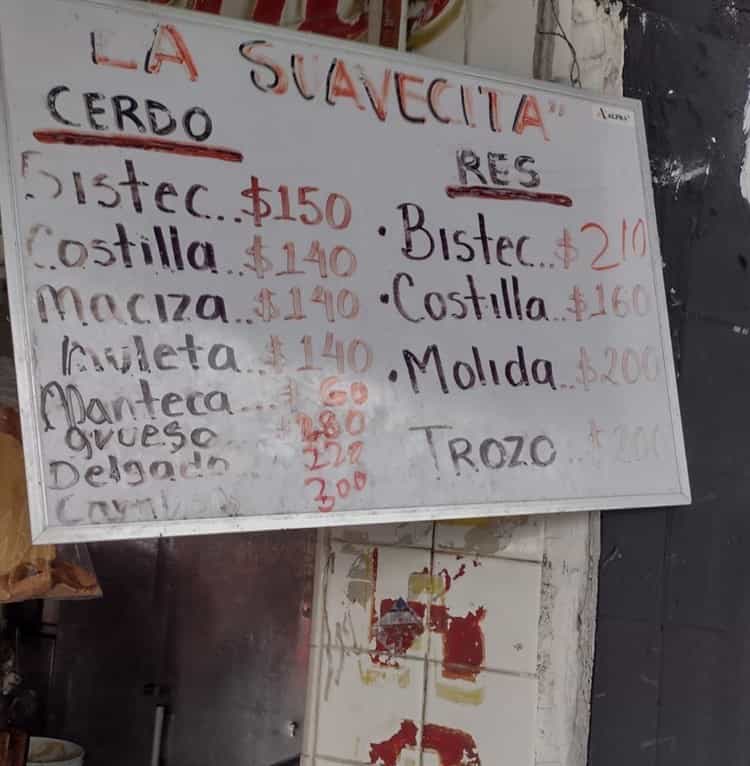 LA SUAVECITA"
ALPHA
CERDO
Bistec..$150
Costilla..$140
Maciza..$140
Muleta..$140
Manteca...$ 60
grueso.. $280
Delgado... 220
300
RES
• Bistec..$210
• Costilla..$160
• Molida..$200
TROZO..$200